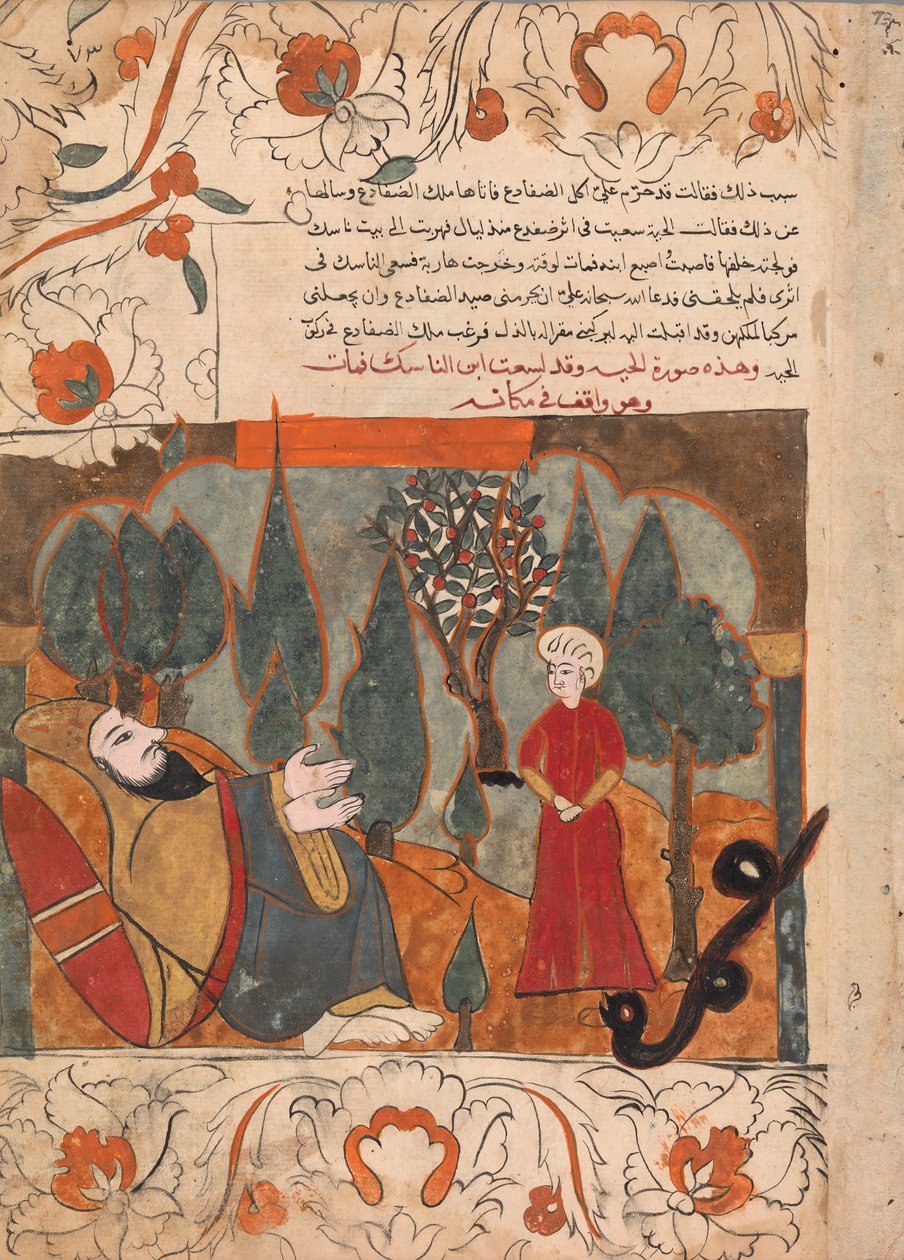 ٧٣
سبب ذلك فقالت قد حرّم عليّ اكل الضفادع فاتاها ملك الضفادع وسالها
عن ذلك فقالت الحية سعيت في اثر ضفدع منذ ليال فهربت الى بيت ناسك
فولجت خلفها فاصبتُ اصبع ابنه فمات لوقته وخرجت هاربة فسعى الناسك في
اثرى فلم يلحقنى فدعا الله سبحانه عليّ ان يحرمنى صيد الضفادع وان يجعلنى
مركبا لملكهن وقد اقبلت اليه ليركبنى مقرا له بالذل فرغب ملك الضفادع في ركوب
الحيه وهذه صورة الحيه وقد لسعت ابن الناسك فمات
وهو واقف في مكانه